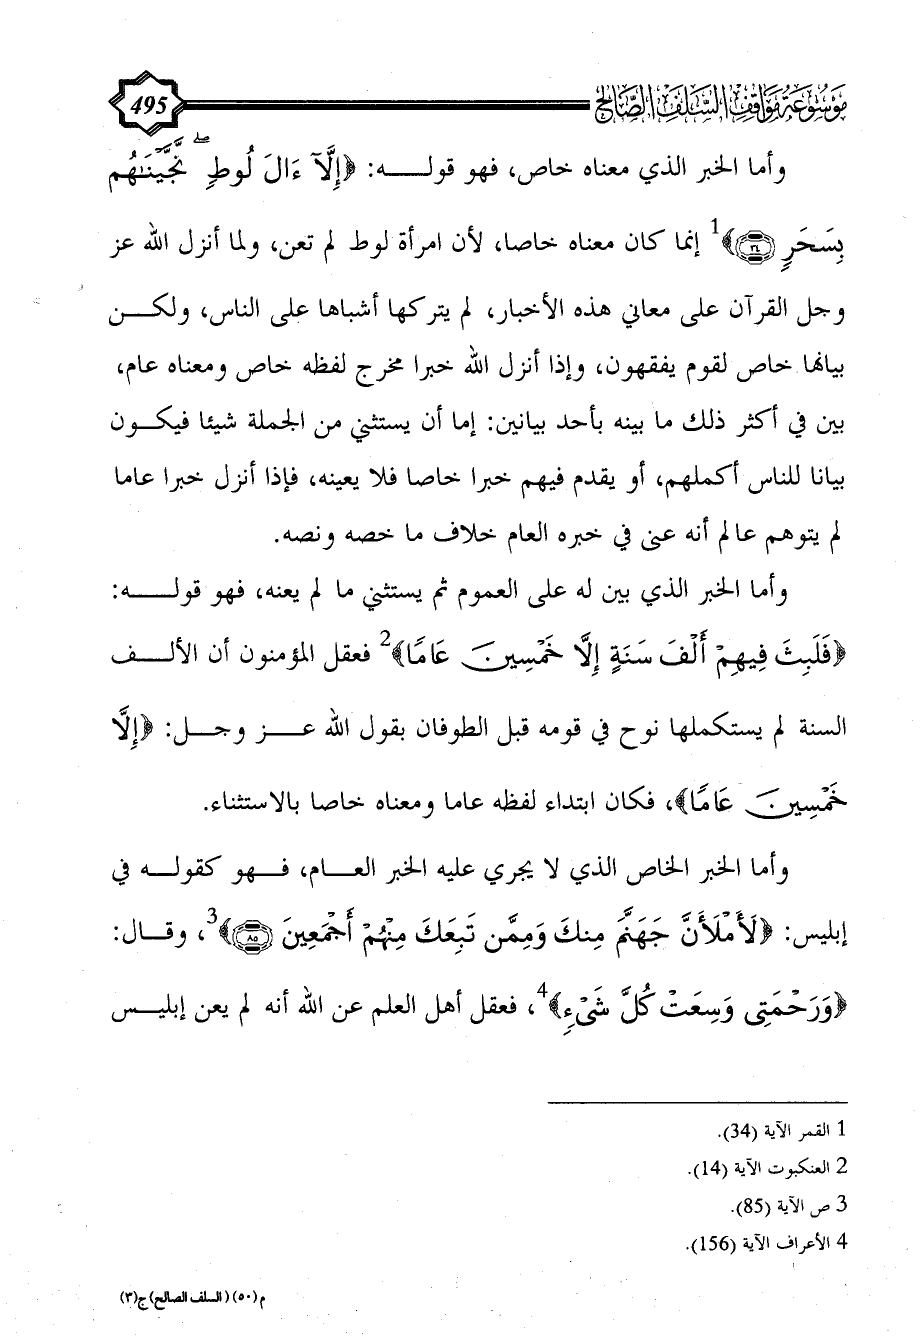 495
موسوعة مواقف السلف الصالح
وأما الخبر الذي معناه خاص، فهو قولـــه: ﴿إِلَّآ ءَالَ لُوطٍۖ نَّجَّيْنَٰهُم
بِسَحَرٍ ۝٣٤﴾1 إنما كان معناه خاصا، لأن امرأة لوط لم تعن، ولما أنزل الله عز
وجل القرآن على معاني هذه الأخبار، لم يتركها أشباها على الناس، ولكـــن
بيانها خاص لقوم يفقهون، وإذا أنزل الله خبرا مخرج لفظه خاص ومعناه عام،
بين في أكثر ذلك ما بينه بأحد بيانين: إما أن يستثني من الجملة شيئا فيكـون
بيانا للناس أكملهم، أو يقدم فيهم خبرا خاصا فلا يعينه، فإذا أنزل خبرا عاما
لم يتوهم عالم أنه عنى في خبره العام خلاف ما خصه ونصه.
وأما الخبر الذي بين له على العموم ثم يستثني ما لم يعنه، فهو قولـــه:
﴿فَلَبِثَ فِيهِمْ أَلْفَ سَنَةٍ إِلَّا خَمْسِينَ عَامًا﴾2 فعقل المؤمنون أن الألـــف
السنة لم يستكملها نوح في قومه قبل الطوفان بقول الله عـــز وجـــل: ﴿إِلَّا
خَمْسِينَ عَامًا﴾، فكان ابتداء لفظه عاما ومعناه خاصا بالاستثناء.
وأما الخبر الخاص الذي لا يجري عليه الخبر العـــام، فـــهو كقولـــه في
إبليس: ﴿لَأَمْلَأَنَّ جَهَنَّمَ مِنكَ وَمِمَّن تَبِعَكَ مِنْهُمْ أَجْمَعِينَ ۝٨٥﴾3، وقـــال:
﴿وَرَحْمَتِى وَسِعَتْ كُلَّ شَىْءٍ﴾4، فعقل أهل العلم عن الله أنه لم يعن إبليـــس
1 القمر الآية (34).
2 العنكبوت الآية (14).
3 ص الآية (85).
4 الأعراف الآية (156).
م (٥٠) (السلف الصالح) ج(٣)